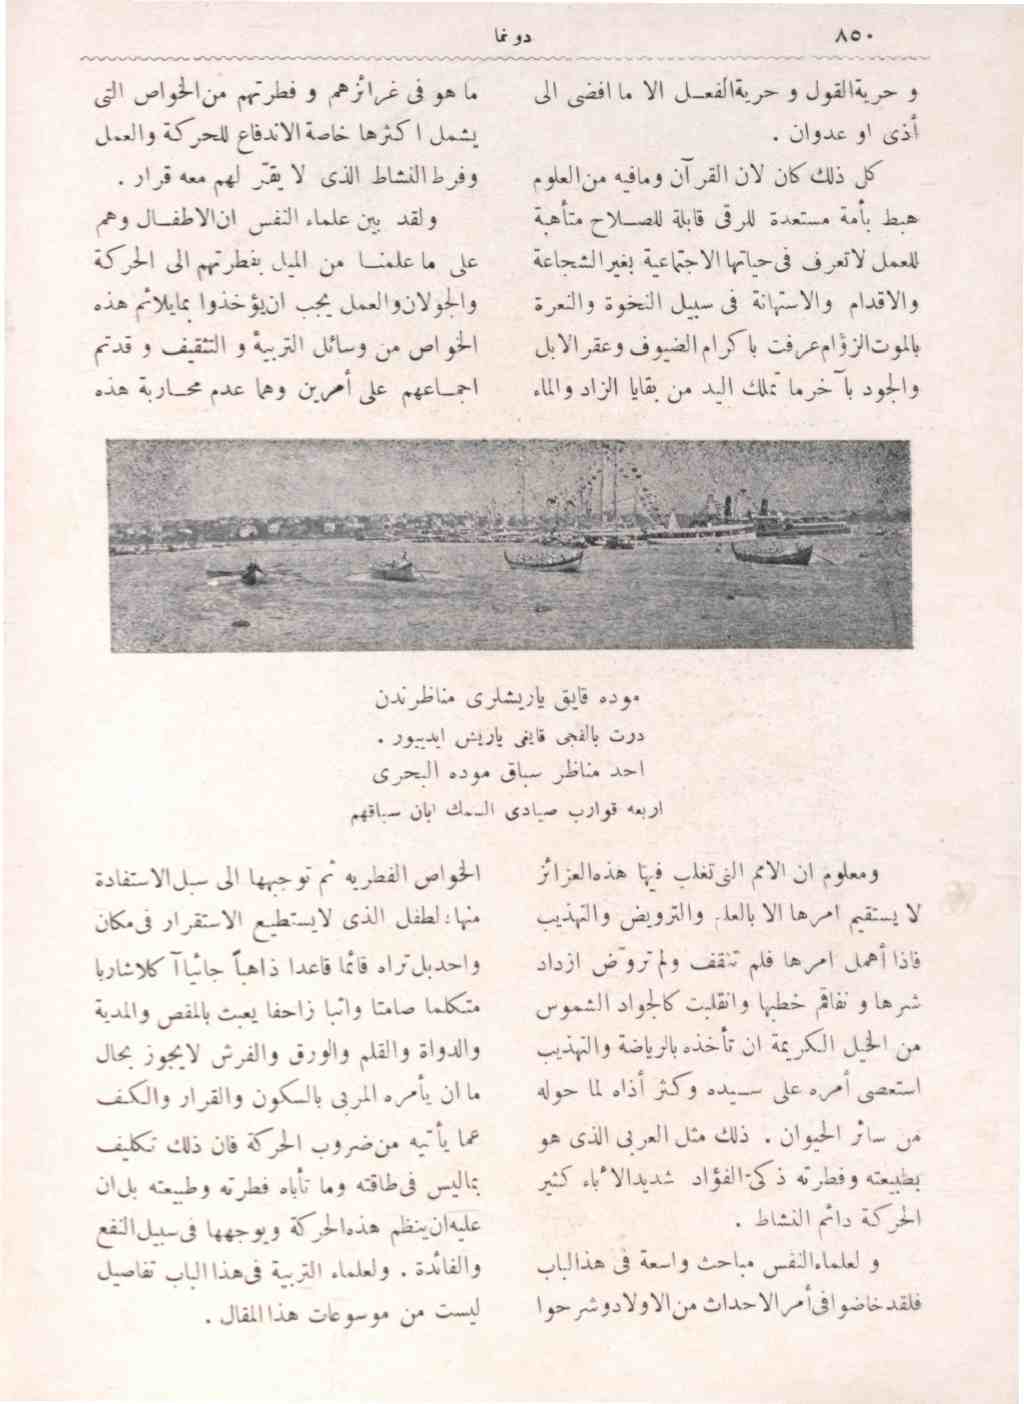 ٨٥٠
دونما
و حريةالقول و حريةالفعـل الا ما افضى الى
أذى او عدوان .
كل ذلك كان لان القرآن ومافيه من‌العلوم
هبط بأمة مستعدة للرقى قابلة للصـلاح متأهبة
للعمل لاتعرف فى‌حياتها الاجتماعية بغير الشجاعة
والاقدام والاستهانة فى سبيل النخوة والنعرة
بالموت‌الزؤام‌عرفت باكرام الضيوف وعقر الابل
والجود بآخرما تملك اليد من بقايا الزاد والماء
ما هو فى غرائزهم و فطرتهم من‌الخواص التى
يشمل اكثرها خاصة الاندفاع للحركة والعمل
وفرط النشاط الذى لا يقرّ لهم معه قرار .
ولقد بين علماء النفس ان‌الاطفـال وهم
على ما علمنـا من الميل بفطرتهم الى الحركة
والجولان‌والعمل يجب ان‌يؤخذوا بمايلائم هذه
الخواص من وسائل التربية و التثقيف و قدتم
اجمـاعهم على أمرين وهما عدم محـاربة هذه
موده قايق ياريشلرى مناظرندن
درت بالقجى قايغى ياريش ايدييور .
احد مناظر سباق موده البحرى
اربعه قوارب صيادى السمك ابان سباقهم
ومعلوم ان الامم التى‌تغلب فيها هذه‌الغرائز
لا يستقيم امرها الا بالعلم والترويض والتهذيب
فاذا أهمل امرها فلم تثقف ولم تروّض ازداد
شرها و تفاقم خطبها وانقلبت كالجواد الشموس
من الخيل الكريمة ان تأخذه بالرياضة والتهذيب
استعصى أمره على سـيده وكثر أذاه لما حوله
من سائر الحيوان . ذلك مثل العربى الذى هو
بطبيعته وفطرته ذكى‌الفؤاد شديدالاباء كثير
الحركة دائم النشاط .
و لعلماءالنفس مباحث واسعة فى هذالباب
فلقد خاضوافى‌أمرالاحداث من‌الاولادوشرحوا
الخواص الفطريه ثم توجيهها الى سبل‌الاستفادة
منها؛ لطفل الذى لايستطيع الاستقرار فى‌مكان
واحدبل‌تراه قائما قاعدا ذاهباً جائياآكلاشاربا
متكلما صامتا واثبا زاحفا يعبث بالمقص والمدية
والدواة والقلم والورق والفرش لايجوز بحال
ما ان يأمره المربى بالسكون والقرار والكف
عما يأتيه من‌ضروب الحركة فان ذلك تكليف
بماليس فى‌طاقته وما تأباه فطرته وطبيعته بل‌ان
عليه‌ان‌ينظم هذه‌الحركة ويوجهها فى‌سبيل‌النفع
والفائدة . ولعلماء التربية فى‌هذا الباب تفاصيل
ليست من موسوعات هذا المقال .